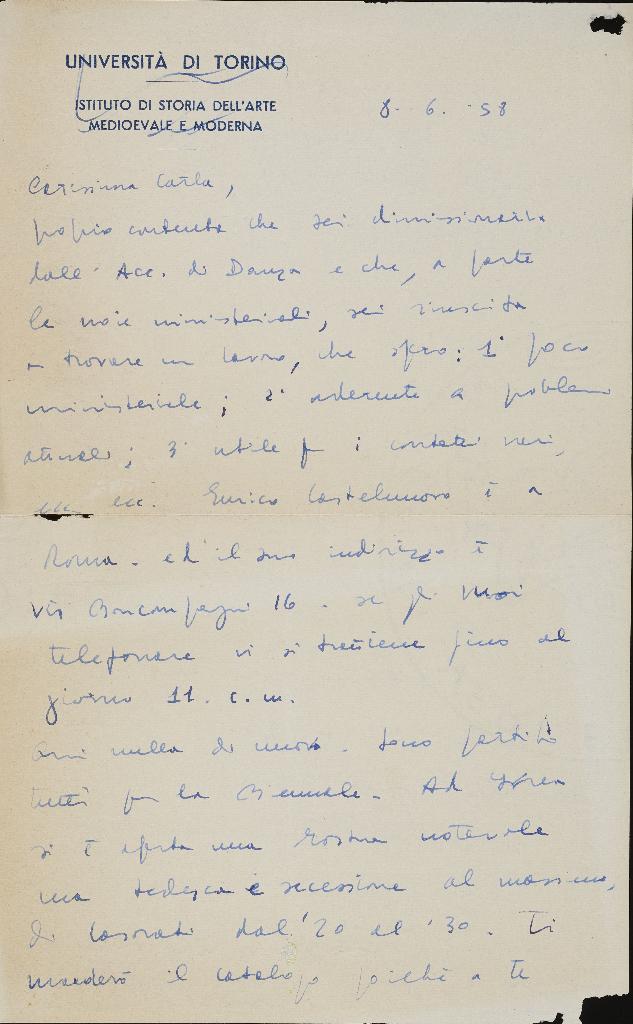 UNIVERSITÀ DI TORINO
ISTITUTO DI STORIA DELL'ARTE
MEDIOEVALE E MODERNA
8. 6. 58
Carissima Carla,
proprio contenta che sei dimissionaria
dall'Acc. di Danza e che, a parte
le noie ministeriali, sei riuscita
a trovare un lavoro, che spero: 1° poco
ministeriale; 2° aderente a problemi
attuali; 3° utile per i contatti
ecc. Enrico Castelnuovo è a
Roma. ed il suo indirizzo è
via Boncompagni 16. se gli vuoi
telefonare vi si trattiene fino al
giorno 11. c. m.
Qui nulla di nuovo. Sono partiti
tutti per la Biennale. Ad Ivrea
si è aperta una Mostra notevole
ma tedesca e secessione al massimo,
di Casorati dal '20 al '30. Ti
manderò il catalogo poiché a te